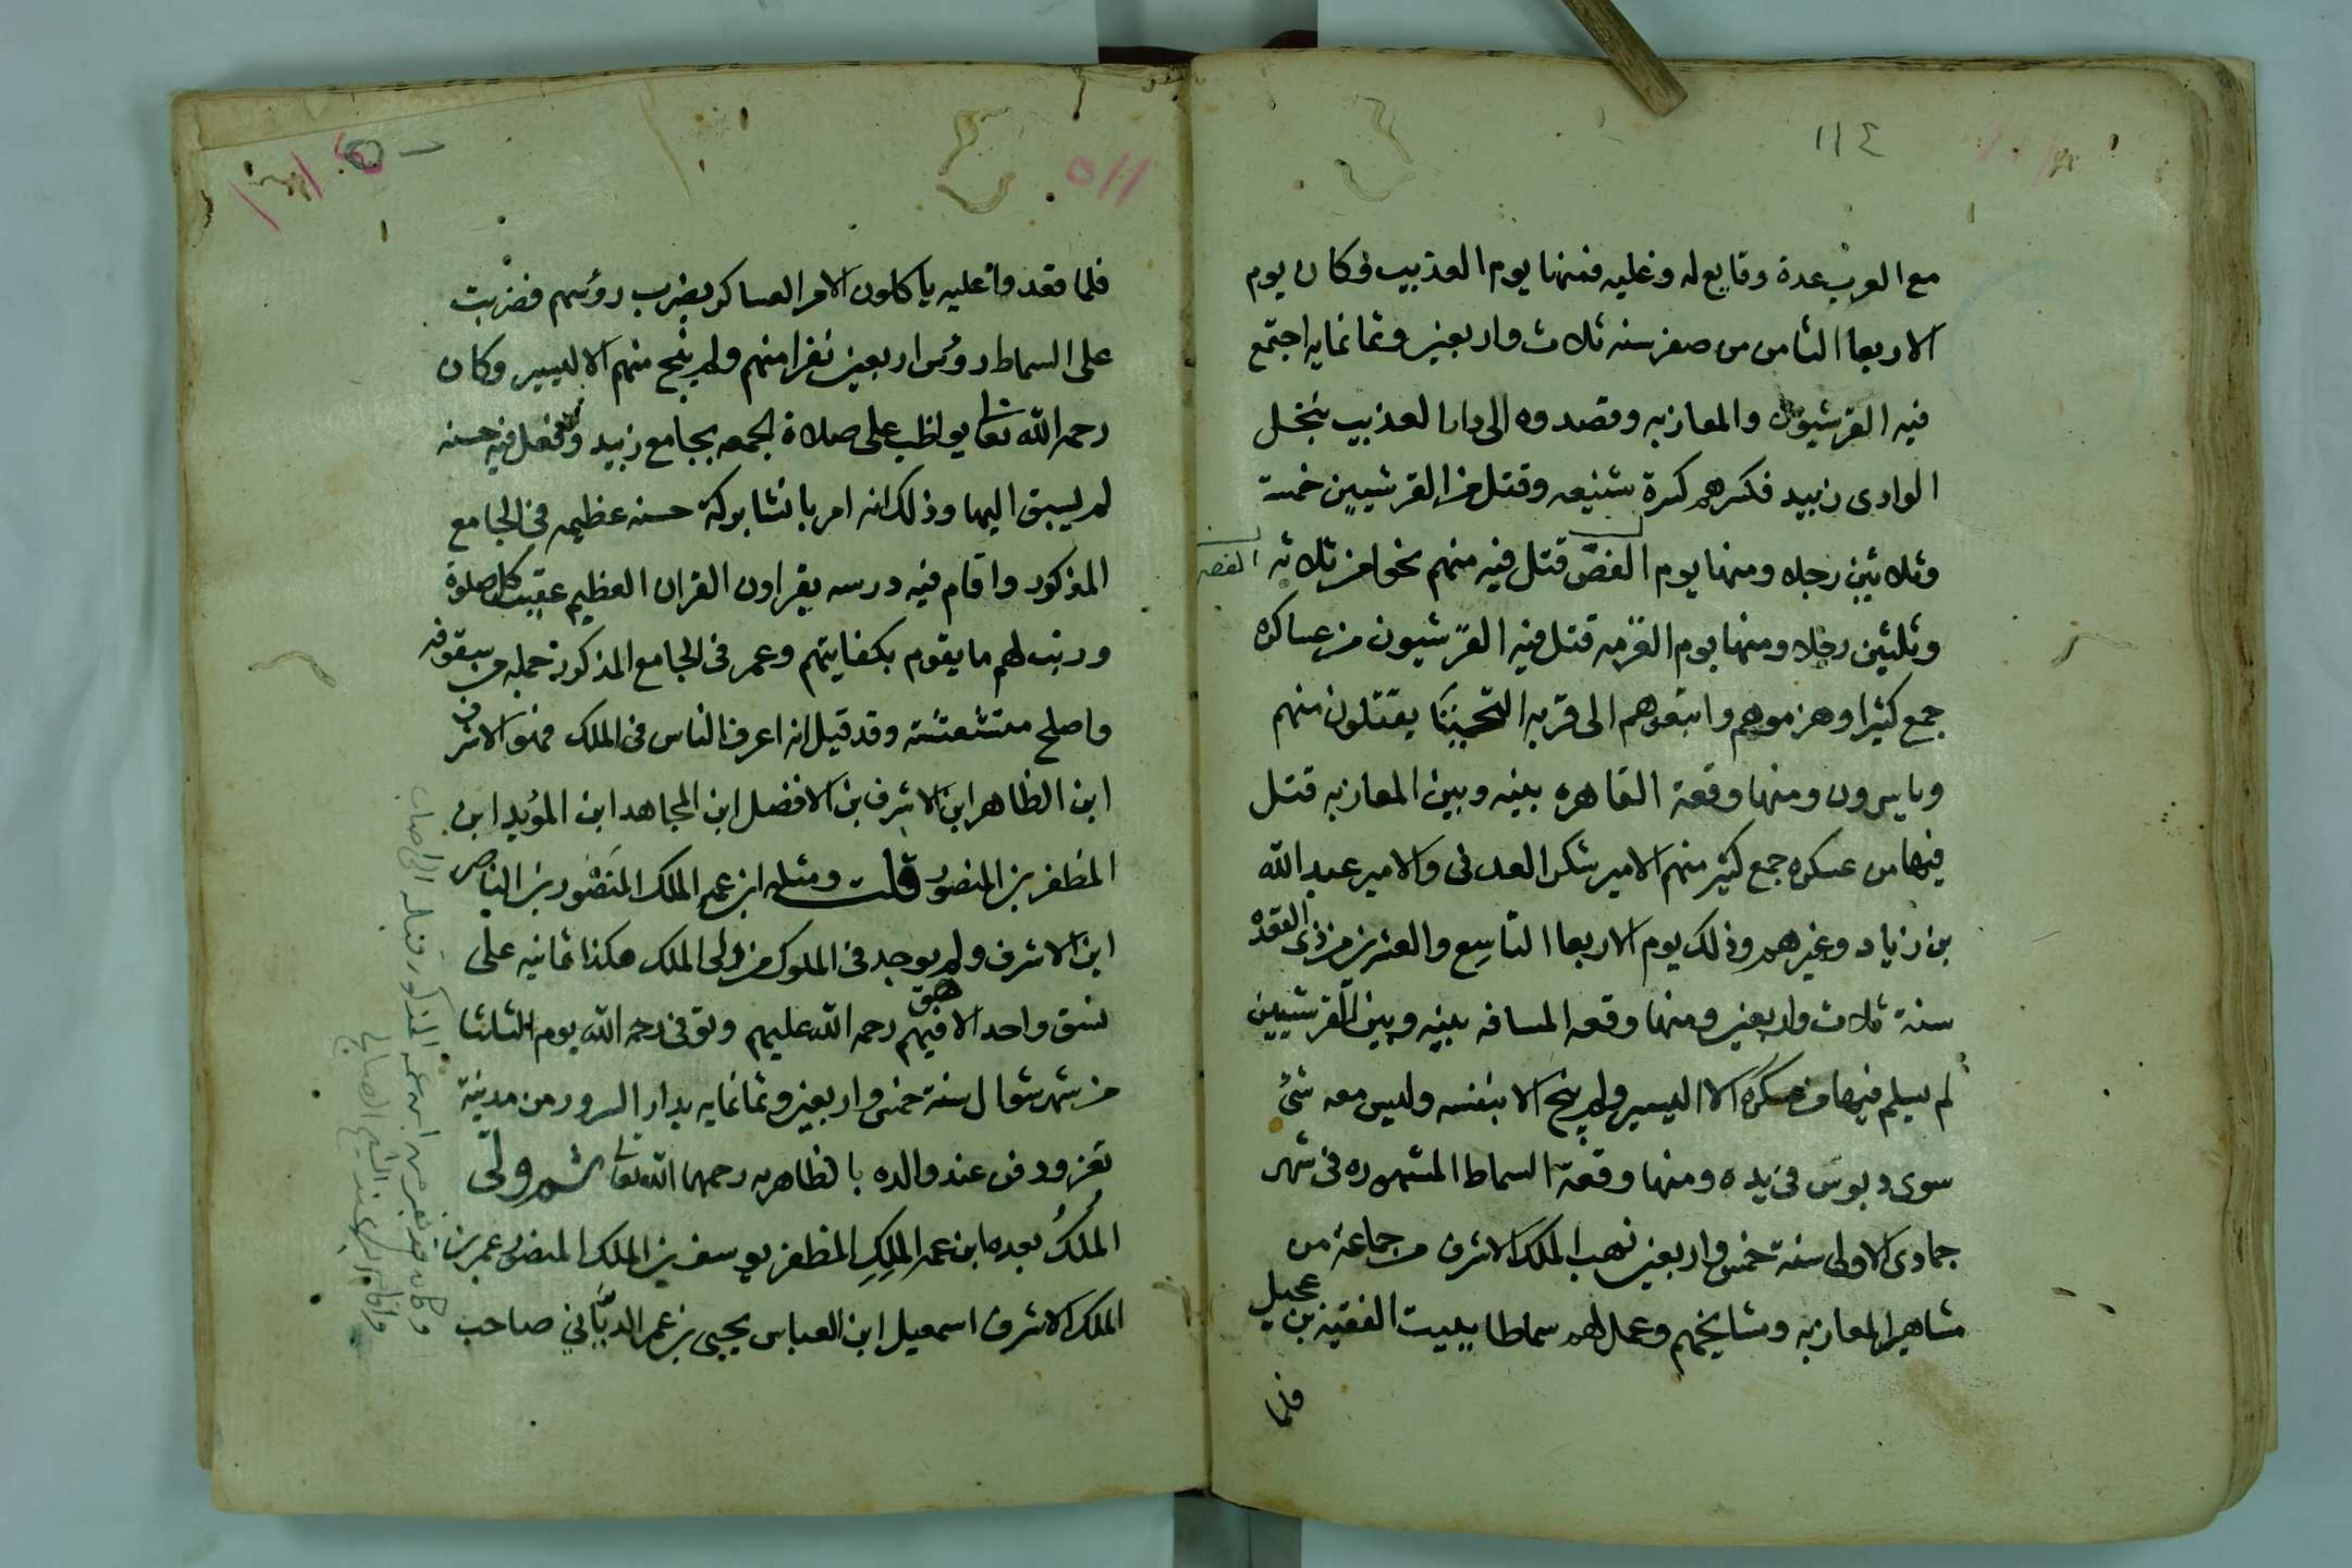 ١١٤
مع العرب عدة وقايع له وعليه فمنها يوم العذبيب وكان يوم
الاربعا الثامن من صفر سنه ثلاث واربعين وثمانمايه اجتمع
فيه القرشيون والمعازبه وقصدوه الى دار العذبيب بنخل
الوادى زبيد فكسرهم كسرة شنيعه وقتل من القرشيين خمسة
وثلاثين رجلا ومنها يوم الفص قتل فيه منهم نحوا من ثلاثه
الفص
وثلثين رجلا ومنها يوم القرمه قتل فيه القرشيون من عساكره
جمع كثيرا وهزموهم واتبعوهم الى قريه التحيتا يقتلون منهم
وياسرون ومنها وقعة القاهره بينه وبين المعازبه قتل
فيها من عسكره جمع كثير منهم الامير شكر العدنى والامير عبد الله
بن زياد وغيرهم وذلك يوم الاربعا التاسع والعشرين من ذى القعده
سنة ثلاث واربعين ومنها وقعه المسافه بينه وبين القرشيين
لم يسلم فيها من عسكره الا اليسير ولم ينج الا بنفسه وليس معه شئ
سوى دبوس فى يده ومنها وقعة السماط المشهوره فى شهر
جمادى الاولى سنة خمس واربعين نهب الملك الاشرف من جماعة من
مشاهير المعازبه ومشايخهم وعمل لهم سماطا ببيت الفقيه بن عجيل
فلما
١١٥
فلما قعدوا عليه ياكلون الامر العساكر بضرب روسهم فضربت
على السماط روس اربعين نفرا منهم ولم ينج منهم الا اليسير وكان
رحمه الله تعا يواظب على صلاة الجمعه بجامع زبيد وفعل فيه حسنه
لم يسبق اليها وذلك انه امر بانشا بركة حسنه عظيمه فى الجامع
المذكور واقام فيه درسه يقراون القران العظيم عقيب كل صلوة
ورتب لهم ما يقوم بكفايتهم وعمر فى الجامع المذكور جمله من سقوفه
واصلح متشعثته وقد قيل انه اعرف الناس فى الملك فهو الاشرف
ابن الظاهر ابن الاشرف بن الافضل ابن المجاهد ابن المؤيد ابن
المظفر بن المنصور قلت ومثله ابن عمه الملك المنصور بن الناصر
ابن الاشرف ولم يوجد فى الملوك من ولى الملك هكذا ثمانيه على
نسق واحد الا فيهم رحمه الله عليهم وتوفى رحمه الله يوم الثلثا
من شهر شوال سنة خمس واربعين وثمانمايه بدار السرور من مدينة
تعز ودفن عند والده بالظاهريه رحمهما الله تعا ثم ولى
الملك بعده ابن عمه الملك المظفر يوسف بن الملك المنصور عمر بن
الملك الاشرف اسمعيل ابن العباس يحيى بن عمر الدباني صاحب